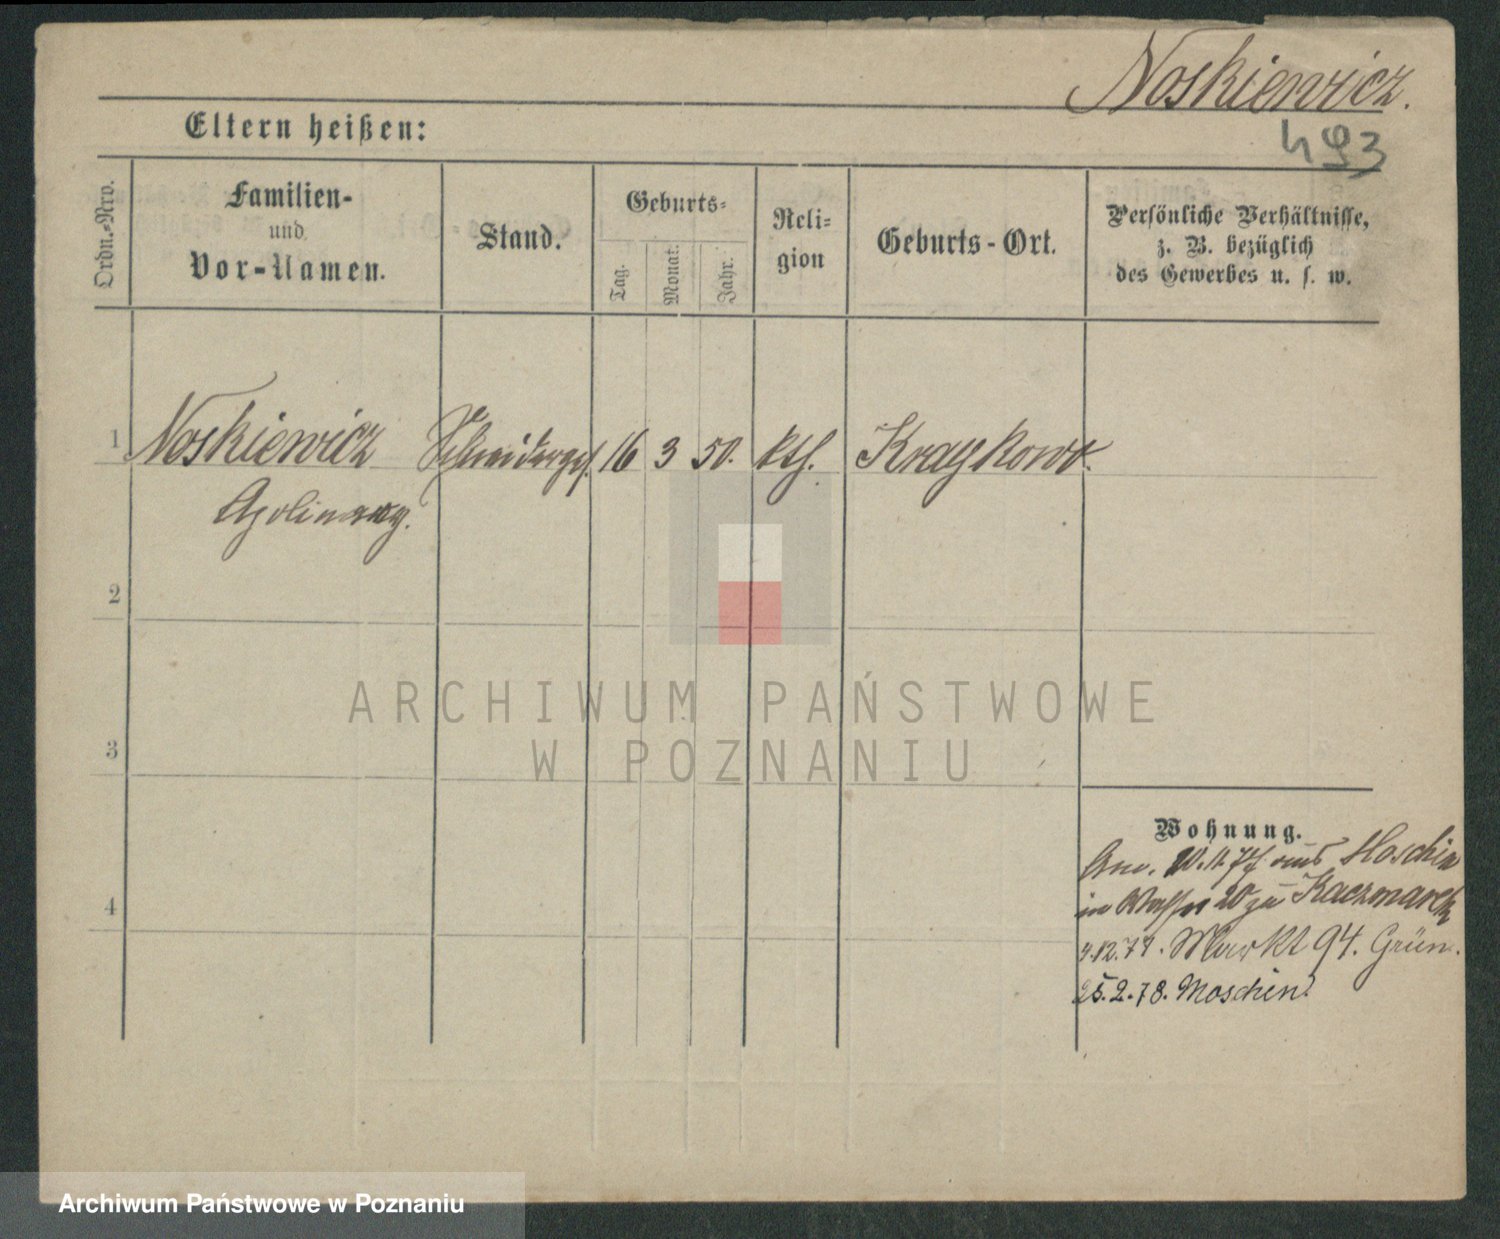 Noskiewicz.
493
Eltern heißen:
Ordn.-Nro.
Familien-
und
Vor-Namen.
Stand.
Geburts-
Tag.
Monat.
Jahr.
Reli-
gion
Geburts-Ort.
Persönliche Verhältnisse,
z. B. bezüglich
des Gewerbes u. s. w.
1 Noskiewicz Schneiderges. 16 3 50. kth. Kraykowo.
Apolinary.
2
3
4
Wohnung.
11.77 aus Moschin
in 20 zu Kaczmarek
4.12.77. Markt 94. Grün.
25.2.78. Moschin.
ARCHIWUM PAŃSTWOWE
W POZNANIU
Archiwum Państwowe w Poznaniu